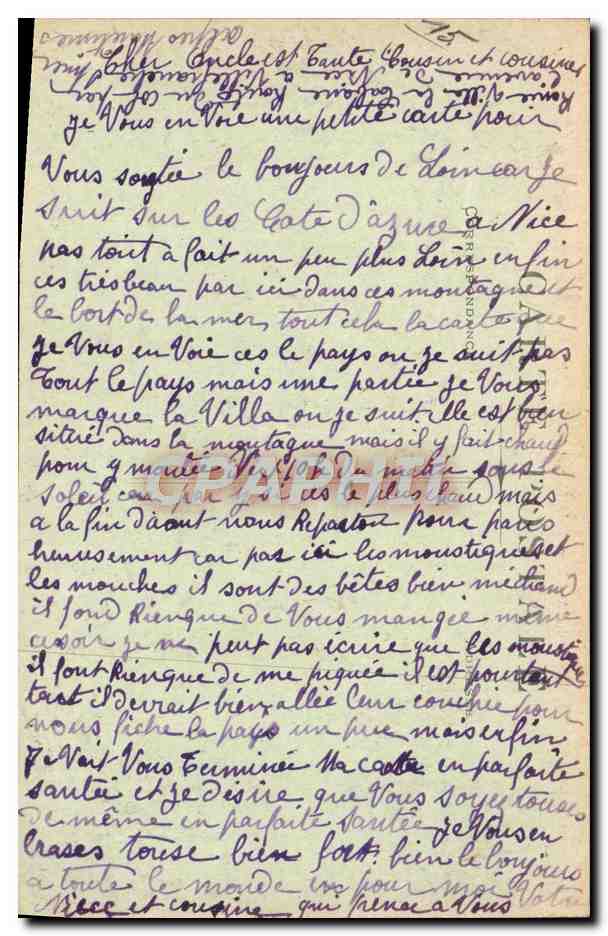 15
Cher Oncle est Tante Cousin et cousine
je Vous en Voie une petite carte pour
Vous soytée le bonjours de Loin car je
suit sur les Cote D'âzure a Nice
pas tout a fait un peu plus Loin enfin
ces très beau par ici dans ces montagne et
le bort de la mer tout cela la carte que
je Vous en Voie ces le pays ou je suit pas
Tout le pays mais une partie je Vous
marque la Villa ou je suit. Elle est bien
situé dans la montagne mais il y fait chaud
pour y montée vers du matin sous le
soleil ces le plus chaud mais
a la fin d'aout nous Reparton pour paris
heureusement car par ici les moustiques et
les mouches il sont des bêtes bien méchand
il fond Rienque de Vous mangée même
ce soir je ne peut pas écrire que les moustique
il font Rienque de me piquée il est pourtent
tart il devrait bien allée ceu couchée pour
nous fiche la paye un peu mais enfin
je Vait Vous Terminée Ma carte en parfaite
santée et je desire que Vous soyee touses
de même en parfaite Santée je Vous en
brases touse bien fort. bien le bonjours
a toute le monde pour moi Votre
Niece et cousine qui pence a Vous
CARTE POSTALE
CORRESPONDANCE
CPAPHIL